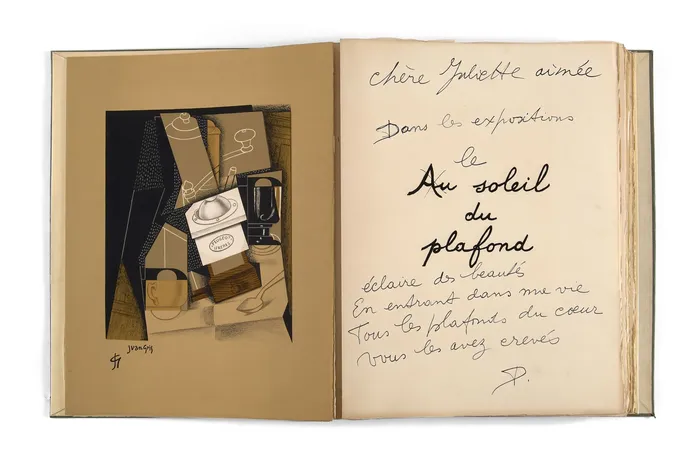 PEUGEOT
FRERES
JUANGRIS
chère Juliette aimée
Dans les expositions
le
Au soleil
du
plafond
éclaire des beautés
En entrant dans me vie
Tous les plafonds du cœur
vous les avez crevés
D.